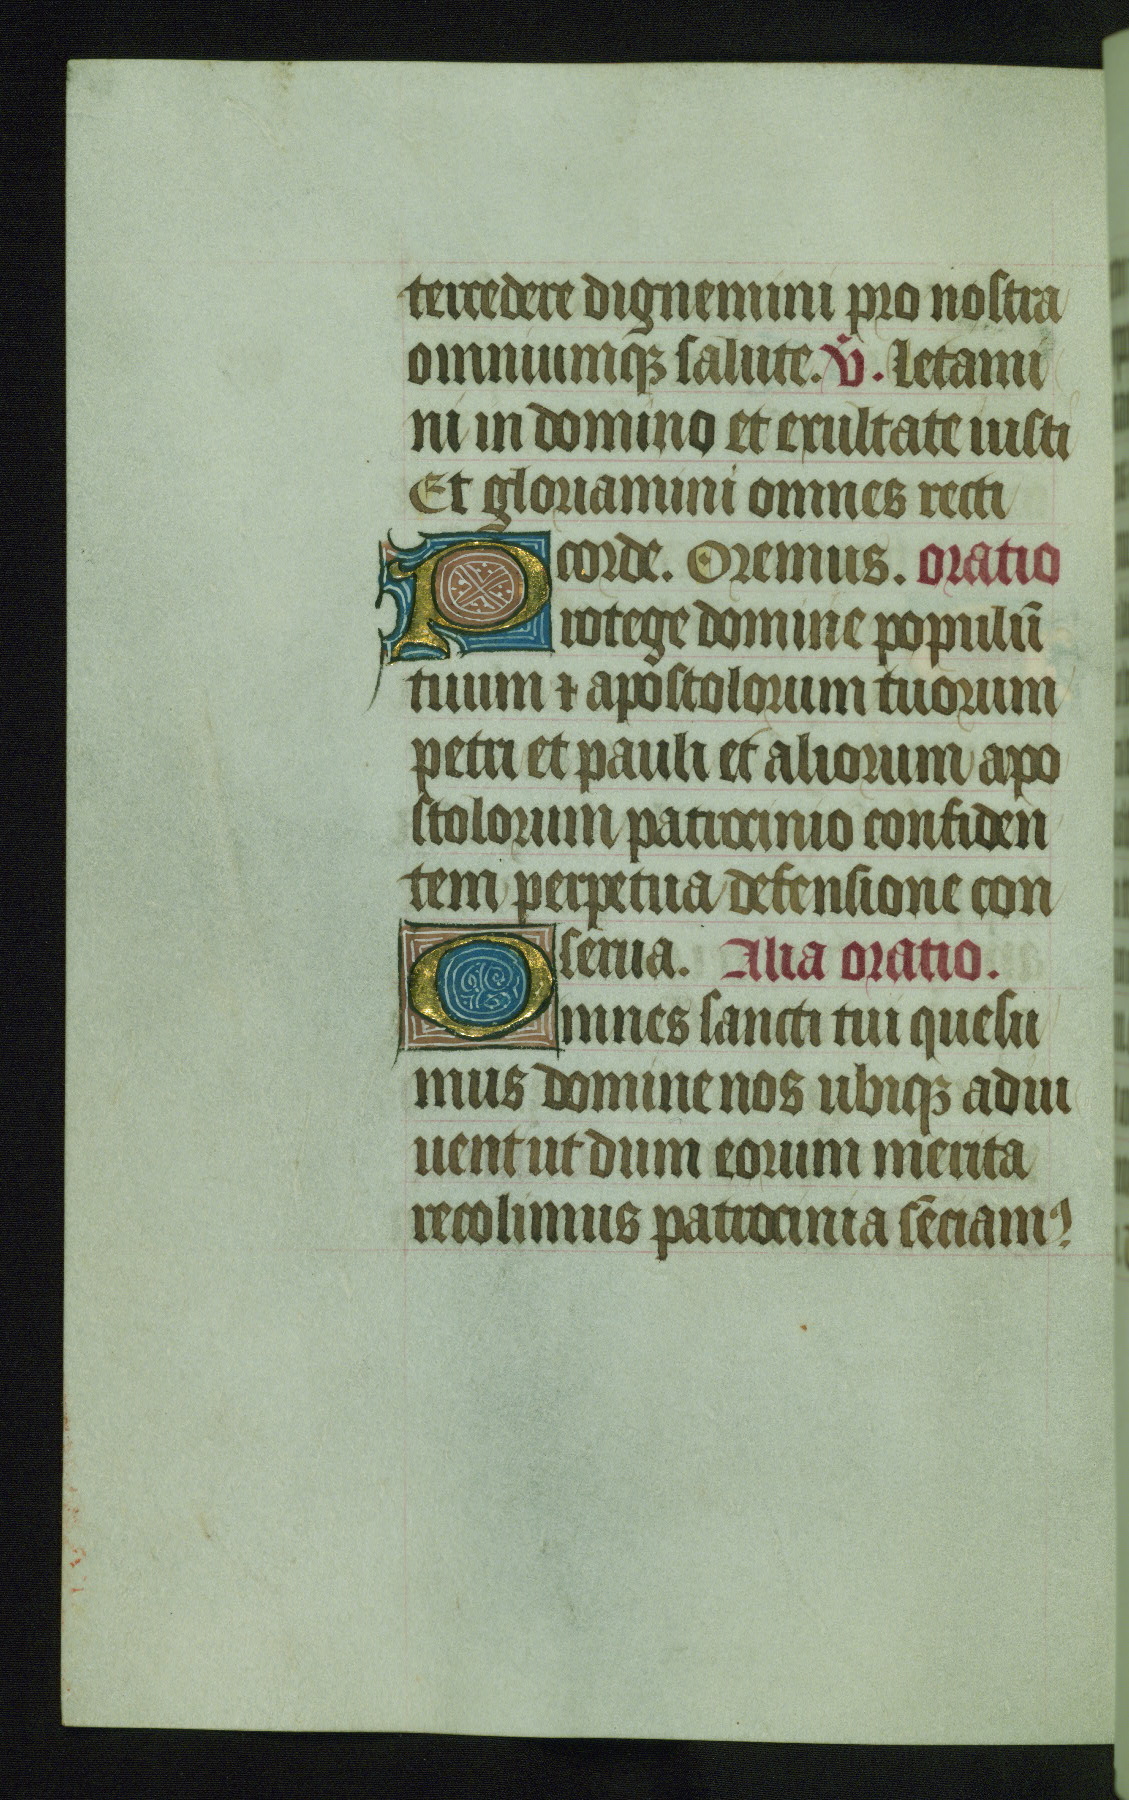 tercedere dignemini pro nostra
omniumqꝫ salute. V̄. Letami
ni in domino et exultate iusti
Et gloriamini omnes recti
corde. Oremus. oratio
Protege domine populū
tuum ⁊ apostolorum tuorum
petri et pauli et aliorum apo
stolorum patrocinio confiden
tem perpetua defensione con
serua. Alia oratio.
Omnes sancti tui quesu
mus domine nos ubiqꝫ adiu
uent ut dum eorum merita
recolimus patrocinia sēciam⁹